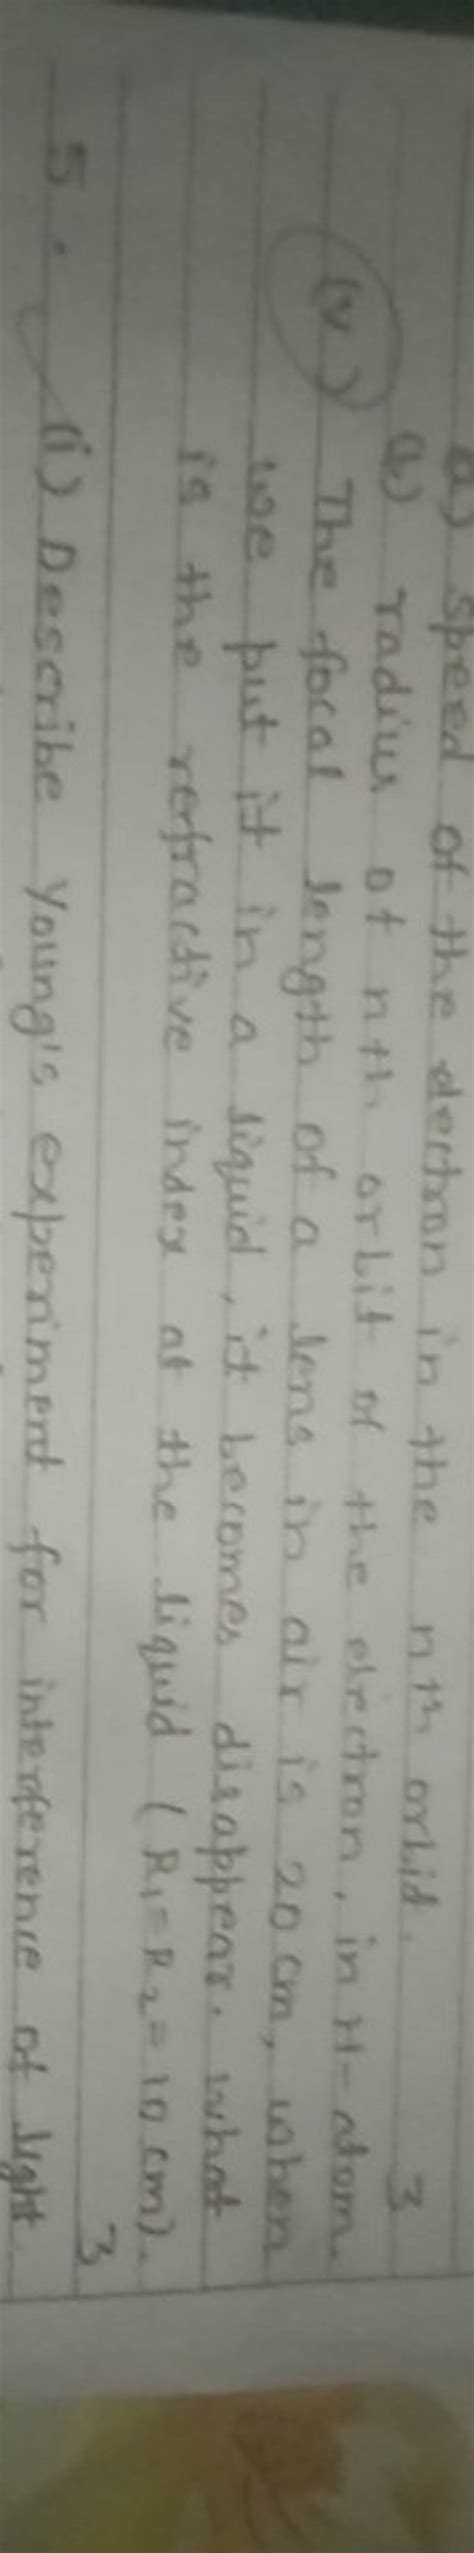 a) speed of the electron in the nth orbid.
(b) radius of nth orbit of the electron, in H-atom.
3
(v) The focal length of a lens in air is 20 cm, when
we put it in a liquid, it becomes disappear. what
is the refractive index at the liquid (R₁=R₂=10 cm).
3
5. (i) Describe Young's experiment for interference of light